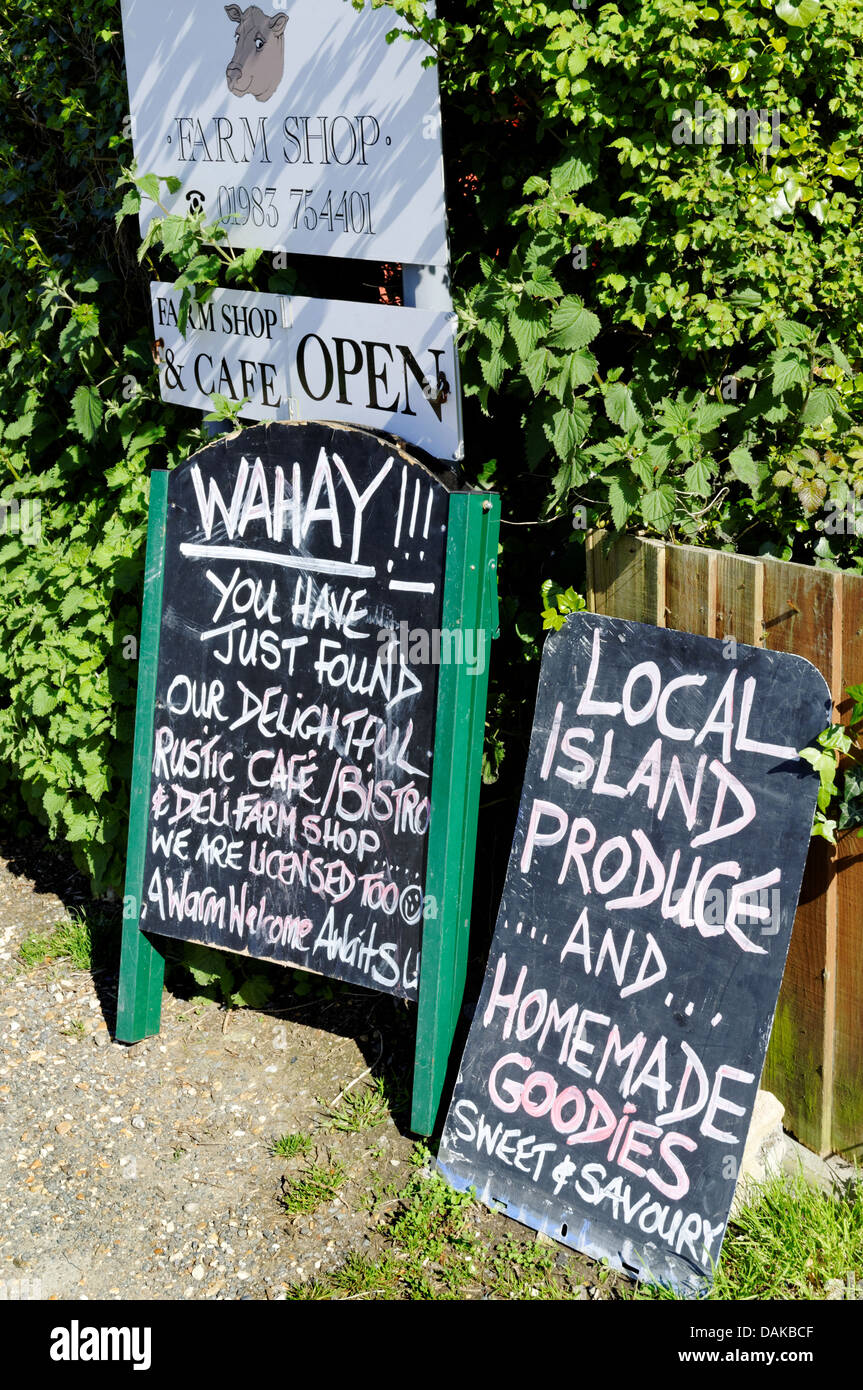 · FARM SHOP ·
☎ 01983 754401
FARM SHOP
& CAFE
OPEN
WAHAY!!!
YOU HAVE
JUST FOUND
OUR DELIGHTFUL
RUSTIC CAFÉ/BISTRO
& DELI FARM SHOP......
WE ARE LICENSED TOO ☺
A WARM WELCOME AWAITS U
LOCAL
ISLAND
PRODUCE
.... AND ....
HOMEMADE
GOODIES
SWEET & SAVOURY
alamy
alamy stock photo
DAKBCF
www.alamy.com